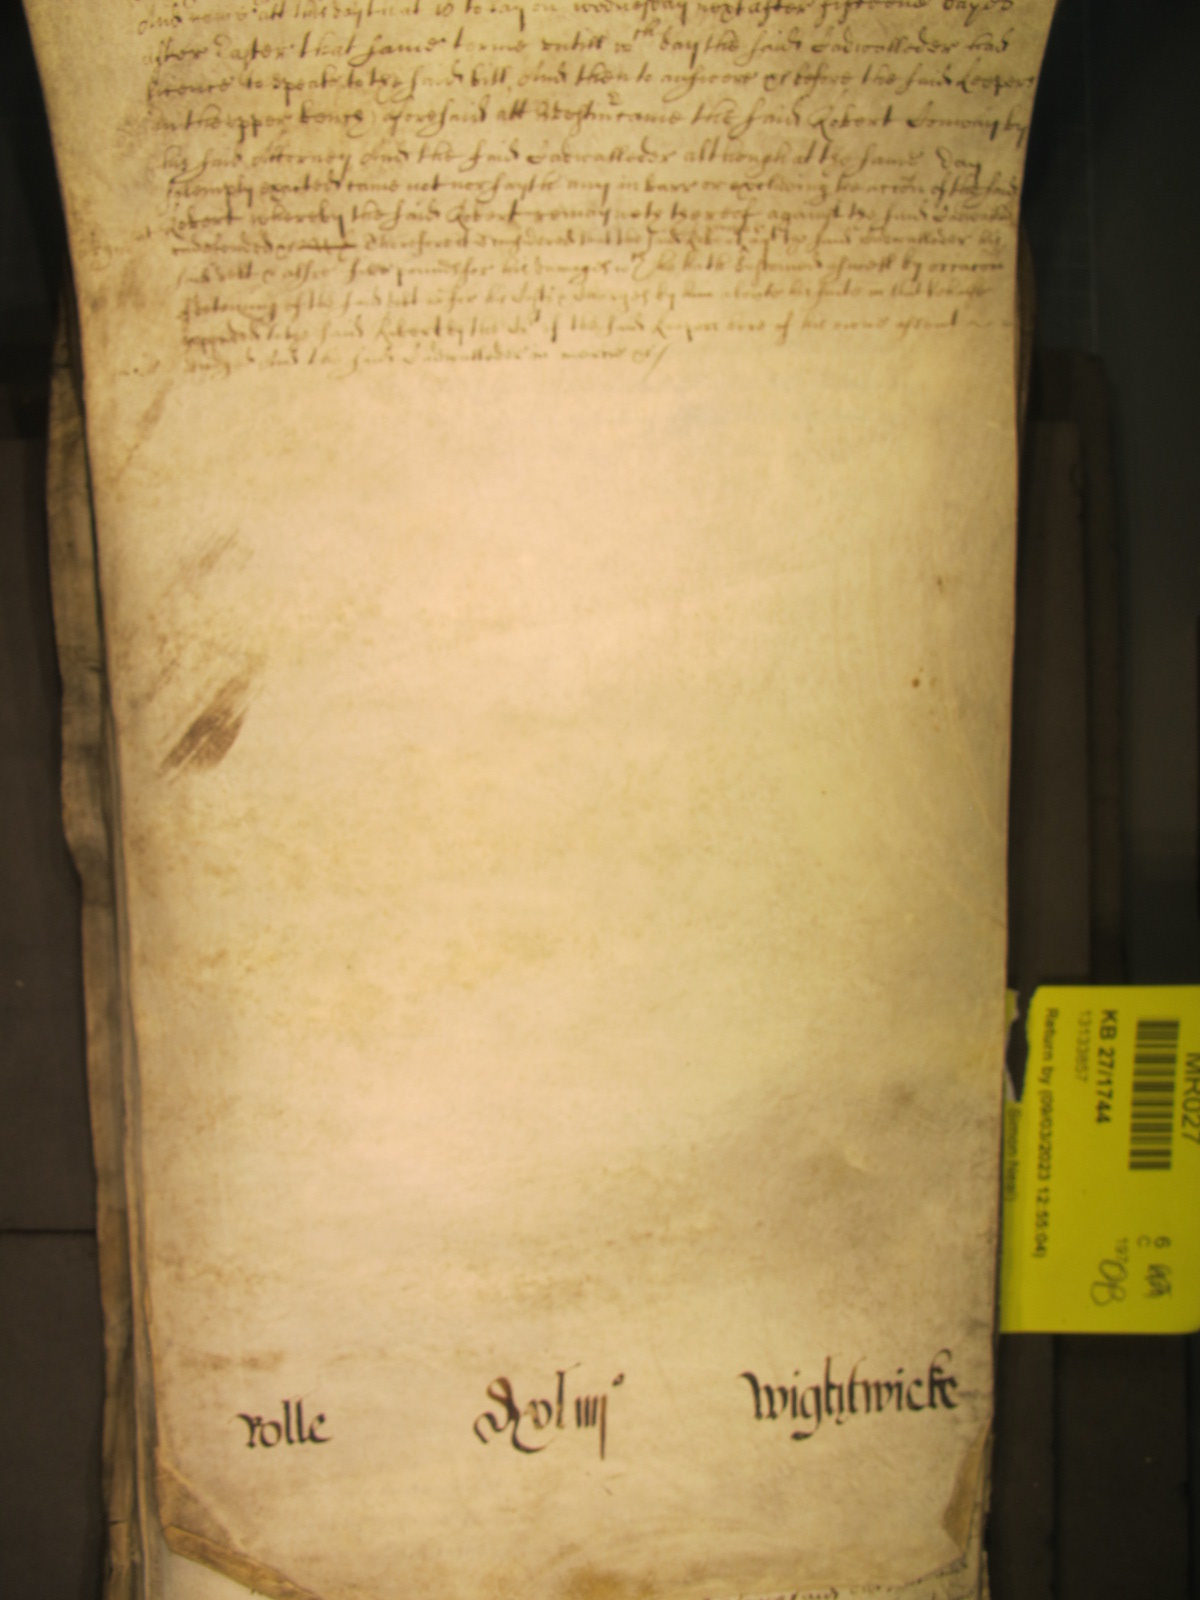 And nowe att this day that is to say on wednesday next after fifteene dayes
after Easter that same terme untill wch day the said Cadwallader had
licence to speake to the said bill And then to answere &c before the said Keepers
in the upper bench aforesaid att Westmr came the said Robert Conway by
his said Atterney And the said Cadwallader although at the same day
solemply exacted came not nor sayth any in barr or excluding the accon of the said
Robert whereby the said Robert remaynes thereof against the said
undefended &c Therefore it is considered that the said Robert the said Cadwallader his
said debt & alsoe pounds for his damages wch he hath susteined aswell by occacon
deteining of the said debt as for his Costs & Charges by him about his suite in that behalfe
expended to the said Robert by the of the said Keepers here of his owne assent
And the said Cadwallader in mercie &c/
Rolle
xlviiijo
Wightwicke
MR027
KB 27/1744
13133857
Return by (09/03/2023 12:55:04)
6
C